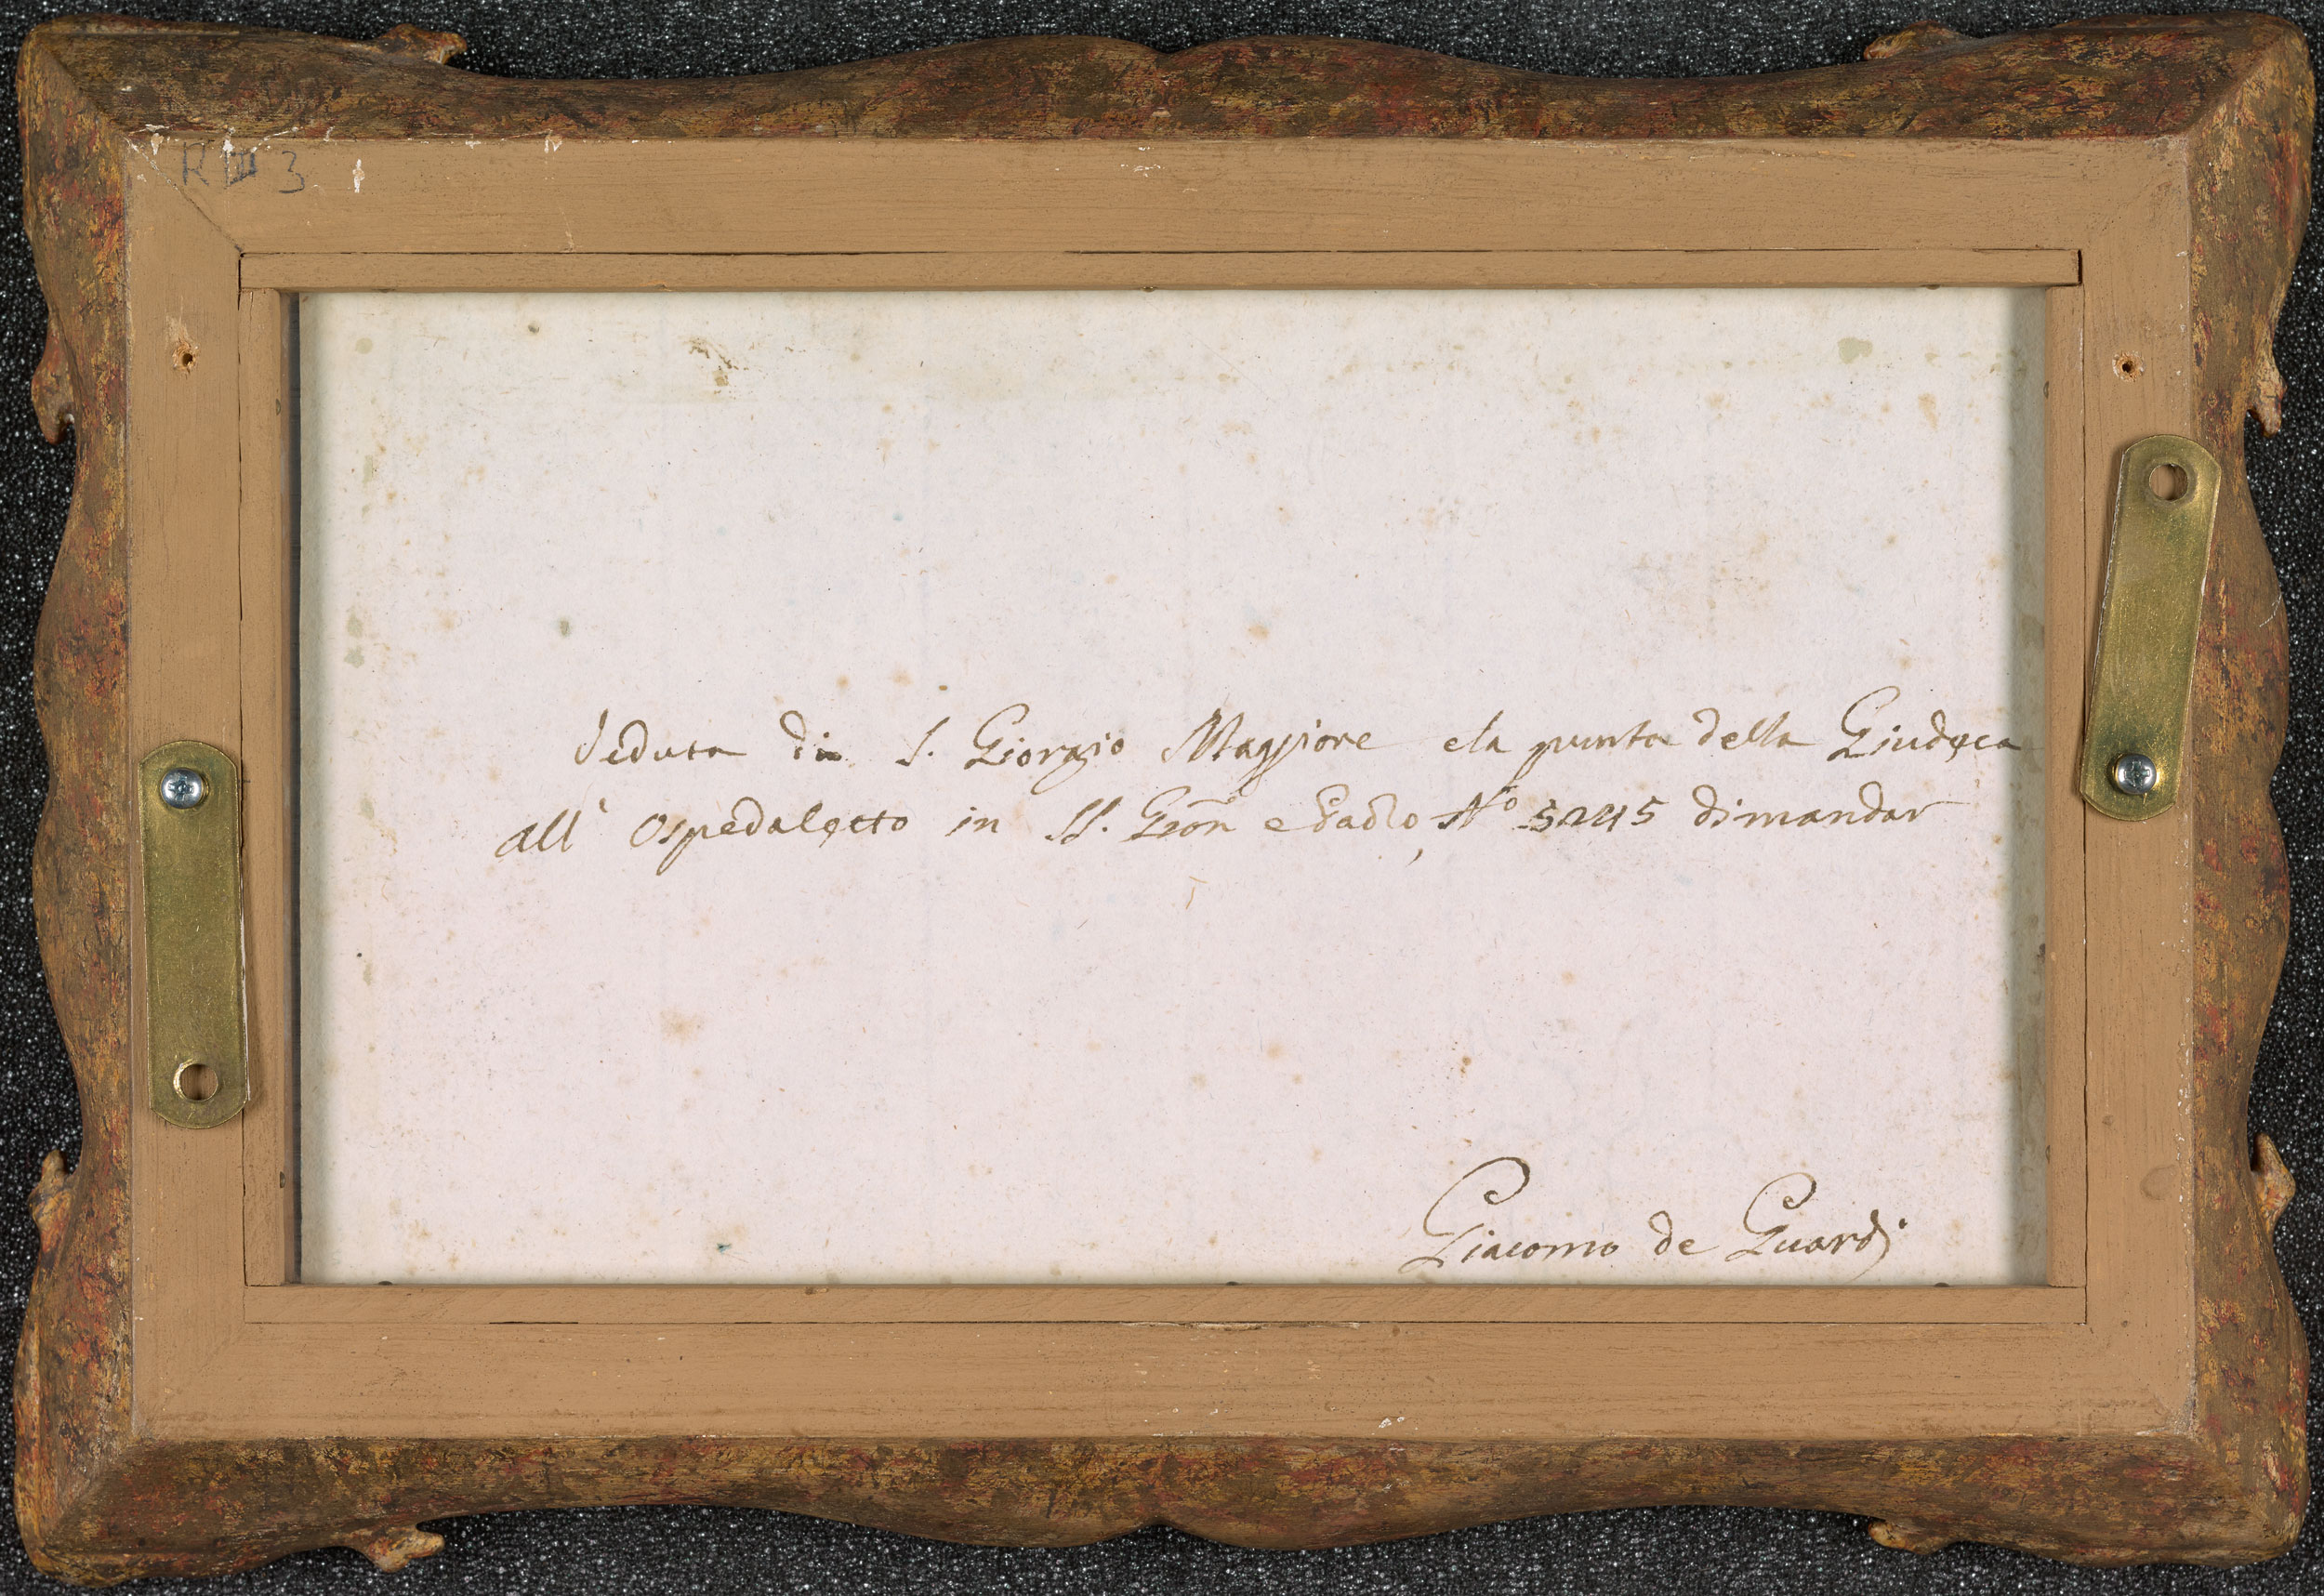 R III 3
Veduta di S. Giorgio Maggiore e la punta della Giudeca
all' Ospedaletto in SS. Gioñ e Paolo, No 5245 dimandar
Giacomo de Guardi